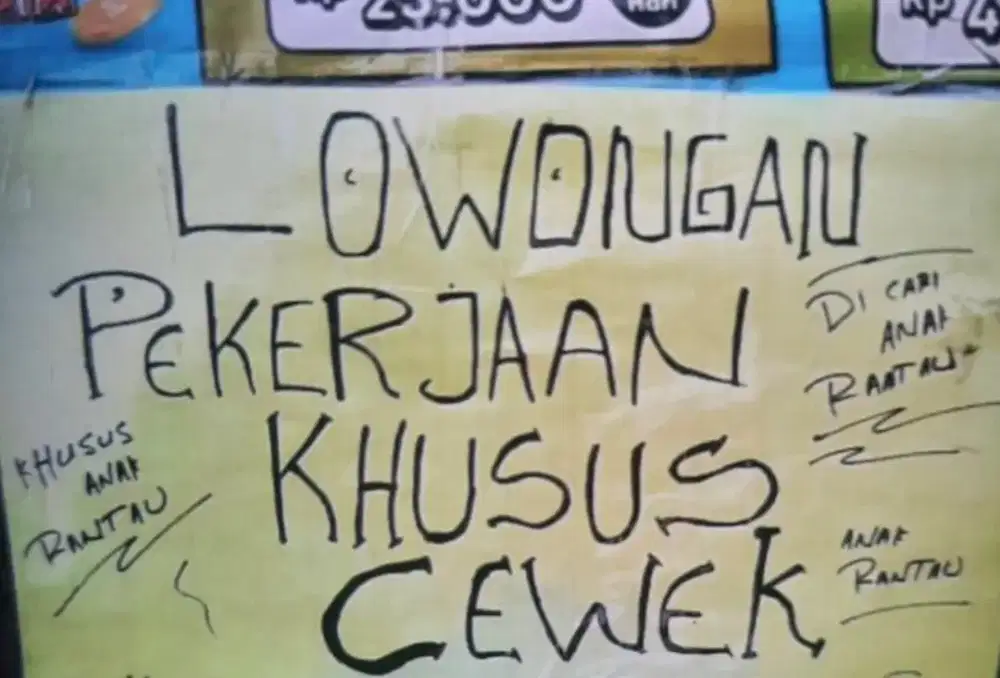 Rp 25.000
Hari
Rp 4
LOWONGAN
PEKERJAAN
KHUSUS
CEWEK
DI CARI
ANAK
RAATAU
KHUSUS
ANAK
RANTAU
ANAK
RANTAU